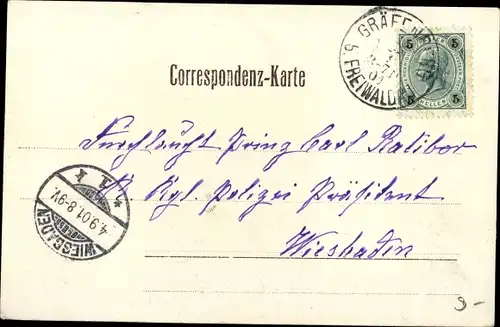 GRÄFENB
b. FREIWALDAU
5 5
5 HELLER 5
Correspondenz-Karte
Durchlaucht Prinz Carl Ratibor
Kgl. Polizei Präsident
Wiesbaden
* 1. I
4.9.01.8-9V.
WIESBADEN
9-